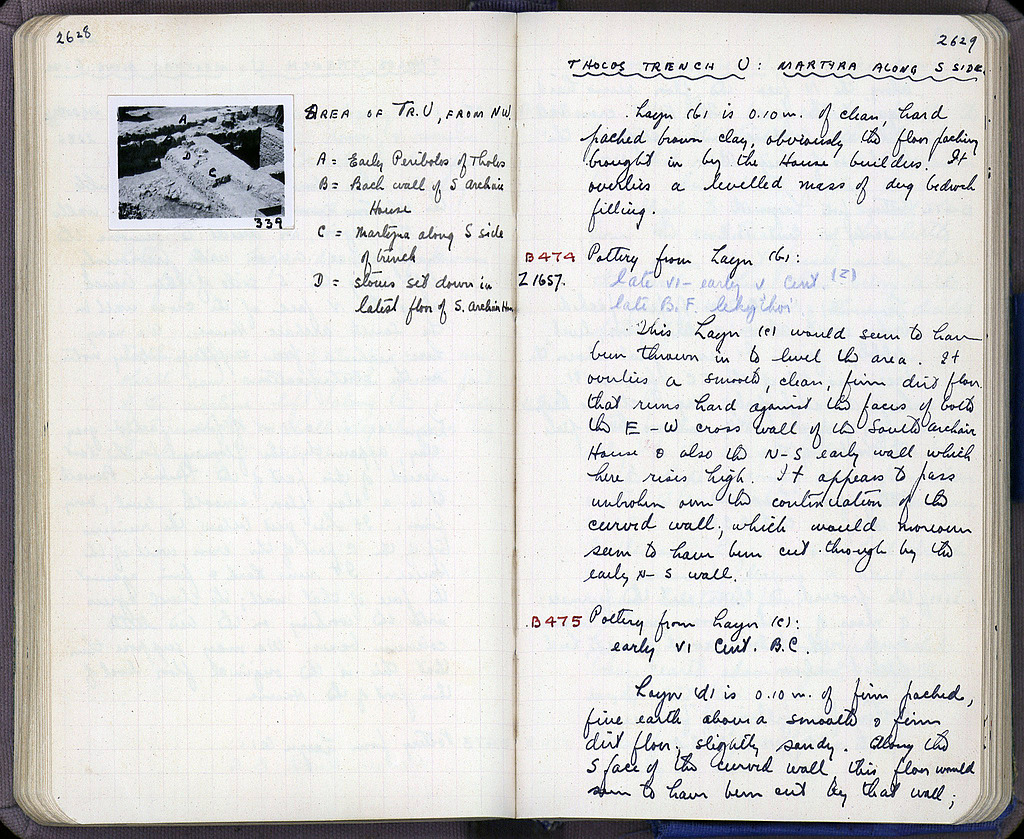 2628
AREA OF TR. U, FROM NW.
A = Early Peribolos of Tholos
B = Back wall of S Archaic
House
C = Martyra along S side
of trench
D = stones set down in
latest floor of S. Archaic House
A
D
C
339
2629
THOLOS TRENCH U: MARTYRA ALONG S SIDE.
Layer (b) is 0.10 m. of clean, hard
packed brown clay, obviously the floor packing
brought in by the House builders. It
overlies a levelled mass of dug bedrock
filling.
B474 Pottery from Layer (b):
Z 1657. late VI - early V Cent. (Z)
late B.F. lekythoi
This Layer (c) would seem to have
been thrown in to level the area. It
overlies a smooth, clean, firm dirt floor
that runs hard against the faces of both
the E-W cross wall of the South Archaic
House & also the N-S early wall which
here rises high. It appears to pass
unbroken over the continuation of the
curved wall, which would moreover
seem to have been cut through by the
early N-S wall.
B475 Pottery from Layer (c):
early VI Cent. B.C.
Layer (d) is 0.10 m. of firm packed,
fine earth above a smooth & firm
dirt floor, slightly sandy. Along the
S face of the curved wall, this floor would
seem to have been cut by that wall;